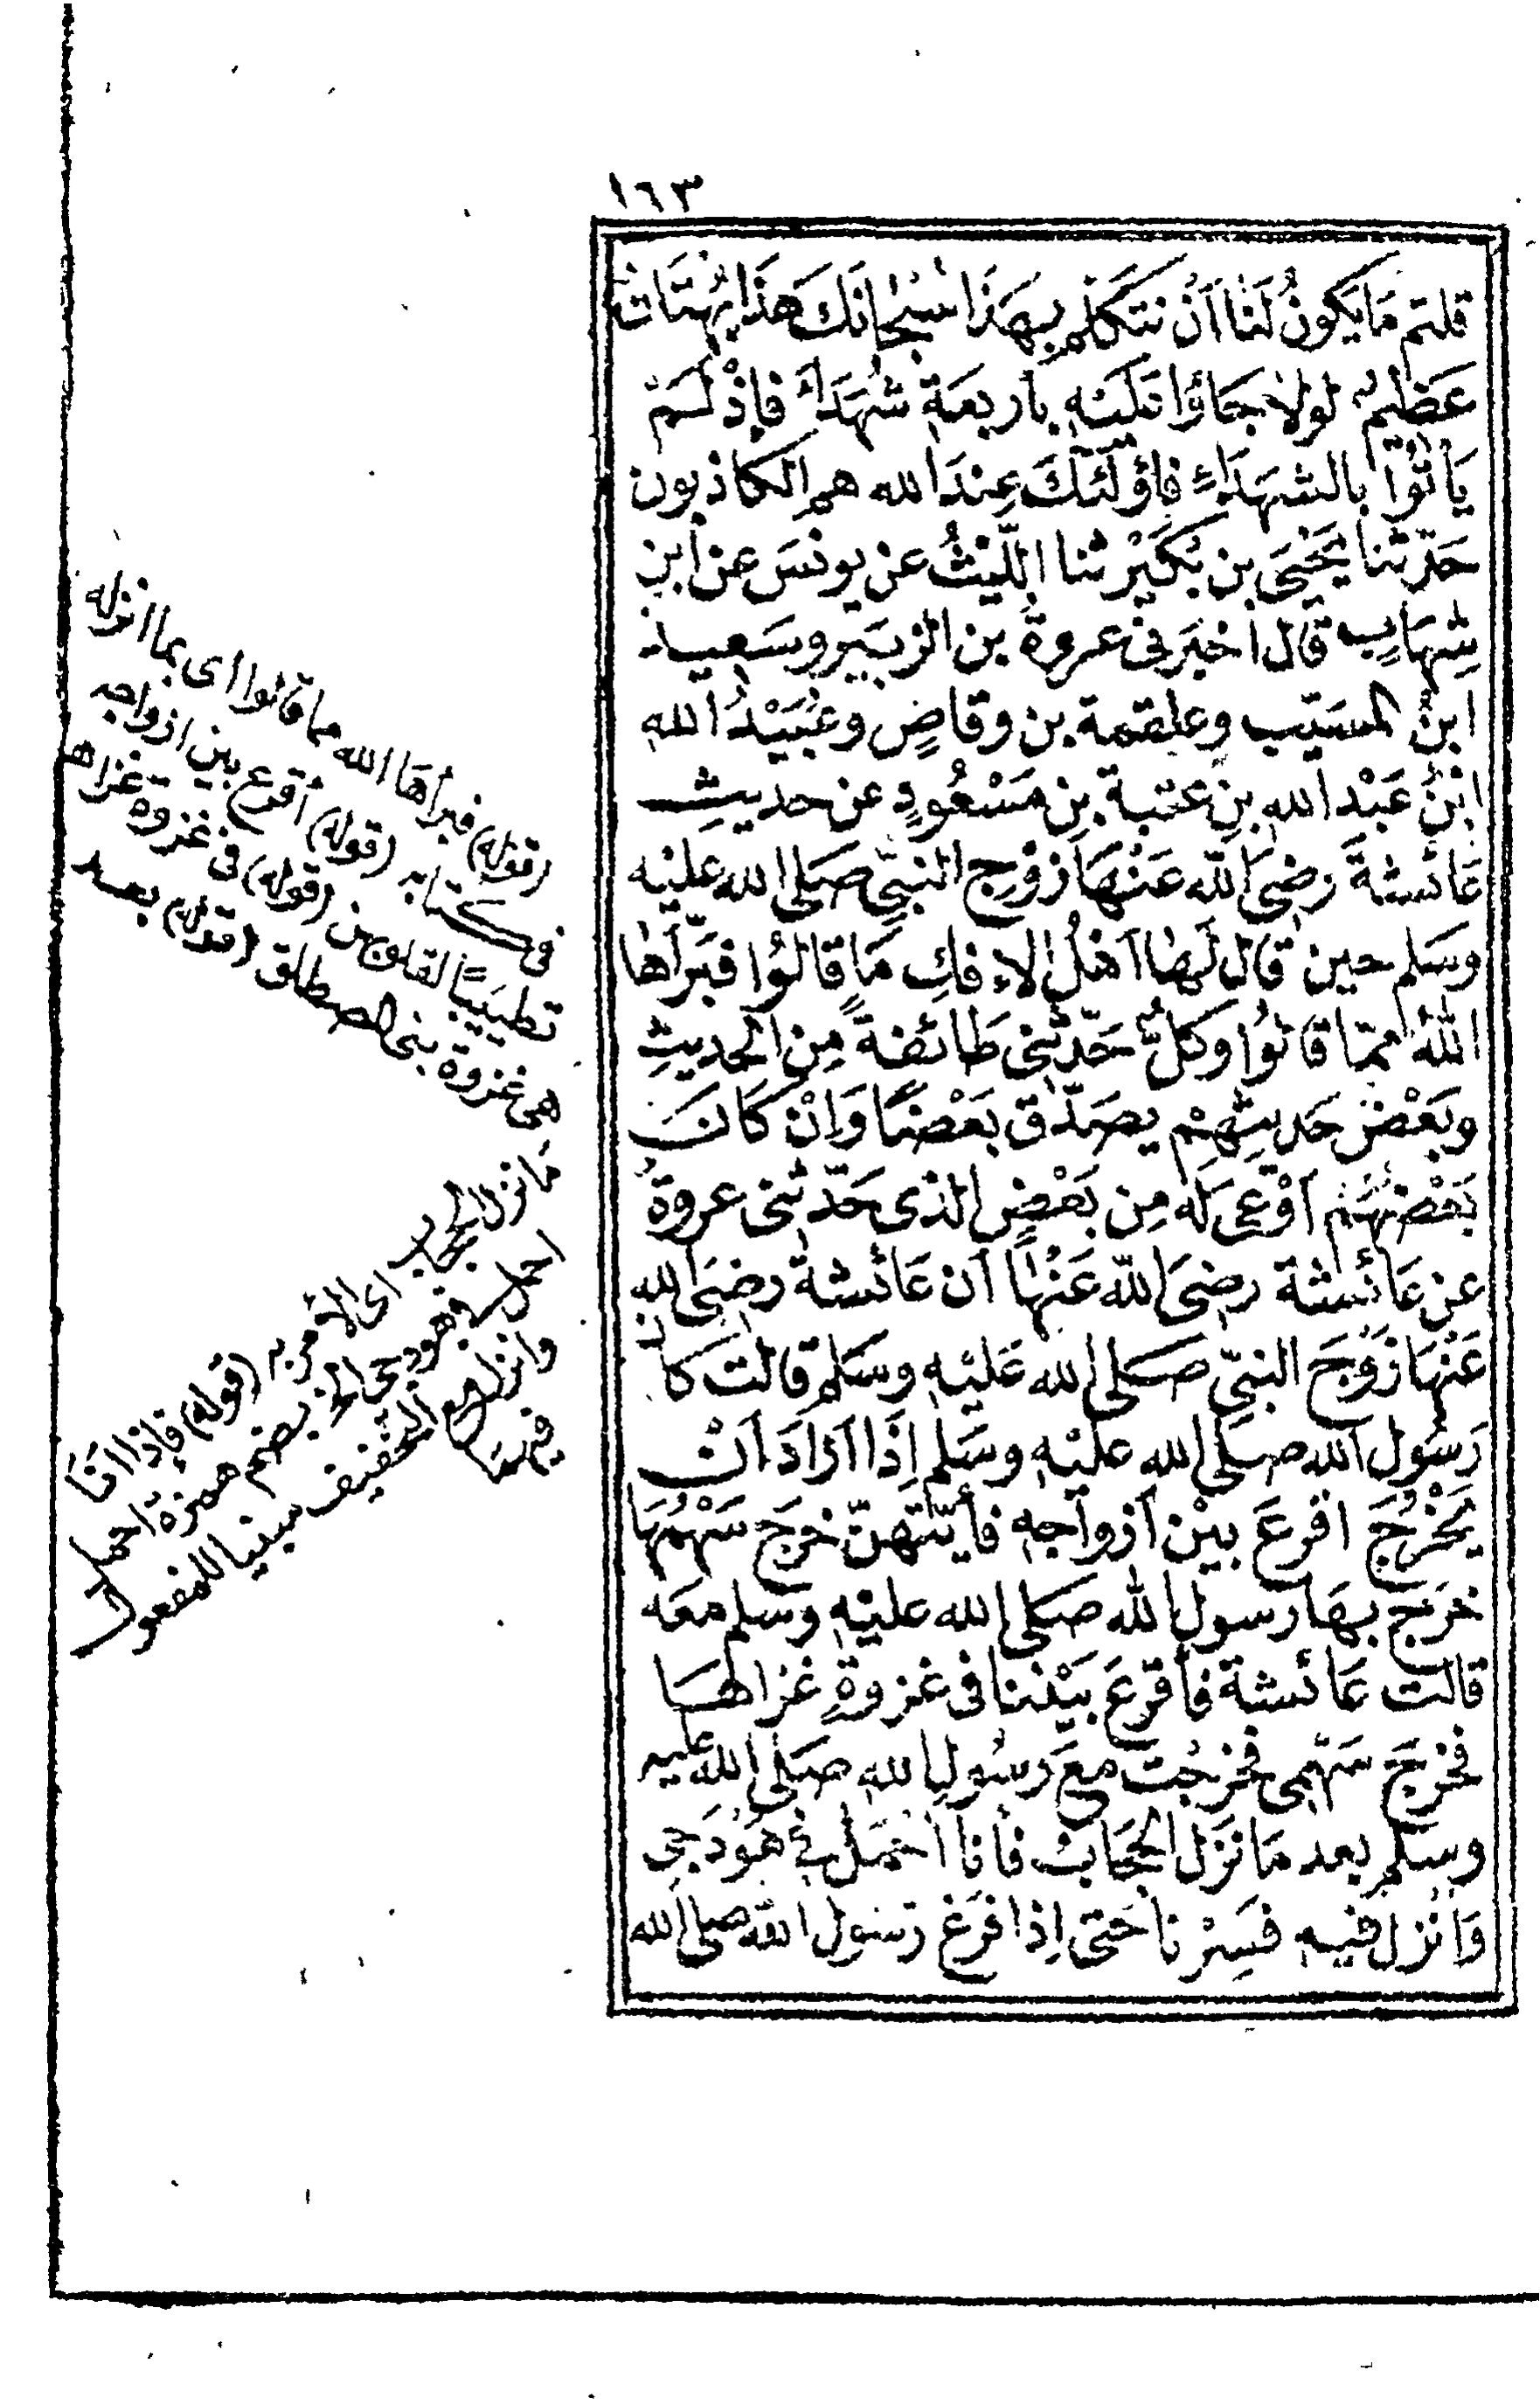 ١٦٣
قلتم مَا يَكونُ لَنَا أَنْ نتَكَلم بهَذَا سُبْحانَكَ هَذَا بُهتَانٌ
عَظيمٌ لولا جَاؤا عَلَيْهِ بأربعَةِ شُهَدَاءَ فإذْ لَمْ
يَأتُوا بالشهَدَاءِ فأولَئكَ عِنْدَ الله هم الكاذبون
حَدّثنا يَحْيَى بن بُكَيْر ثنا اللّيْثُ عن يونسَ عن ابنِ
شِهَابٍ قال أخبَرنى عروةُ بن الزبَير وسَعيدُ
ابنُ المسَيّب وعلقمة بن وقاصٍ وعُبَيْدُ الله
ابْنُ عَبْد الله بنِ عتبة بنِ مَسْعُودٍ عن حديثِ
عَائشةَ رَضىَ الله عَنْهَا زَوْجِ النبيِّ صَلى الله عليْه
وسَلم حين قال لَهَا أهْلُ الإفكِ مَا قالُوا فبَرَّأهَا
اللهُ ممّا قالُوا وكلٌّ حَدّثنى طَائفةً مِن الحديثِ
وبَعْضُ حَديثِهِمْ يصَدّق بَعْضًا وَإنْ كَانَ
بَعْضهُمْ أوْعى لَه مِن بَعْضٍ الذى حَدّثنى عروةُ
عن عَائشة رضىَ الله عَنْهَا أن عَائشة رضىَ الله
عَنْهَا زَوْجَ النبيِّ صَلى الله عَليْهِ وسَلم قالت كانَ
رَسُول الله صلى الله عليْهِ وسَلم إذَا أرَادَ أنْ
يَخْرُجَ أقرعَ بيْن أزواجهِ فأيّتهنّ خرَج سَهْمُهَا
خرَج بهَا رسول الله صَلى الله عليْه وسلم معَه
قالت عَائشة فأقرعَ بيْننا فى غزوةٍ غزاهَا
فخرَجَ سَهْمى فخرجْت معَ رَسُول الله صَلى الله عليه
وسلم بعد مَا نَزَل الحجَابُ فأنا أحْمَل في هَوْدَجِى
وَأنْزل فيه فسِرْنا حَتى إذا فرَغ رَسُول الله صلى الله
(قوله) فبرأهَا الله مما قالوا أى بما انزله
فى كتابه (قوله) أقرع بين ازواجه
تطييبًا لقلوبهن (قوله) فى غزوة غزاها
هى غزوة بنى المصطلق (قوله) بعد
مَا نزل الحجاب اى الأمر به (قوله) فإذا انَا
احمل فى هودجى وانزل بضم همزة احمل
وانزل مع التخفيف مبنيا للمفعول
فيهمَا